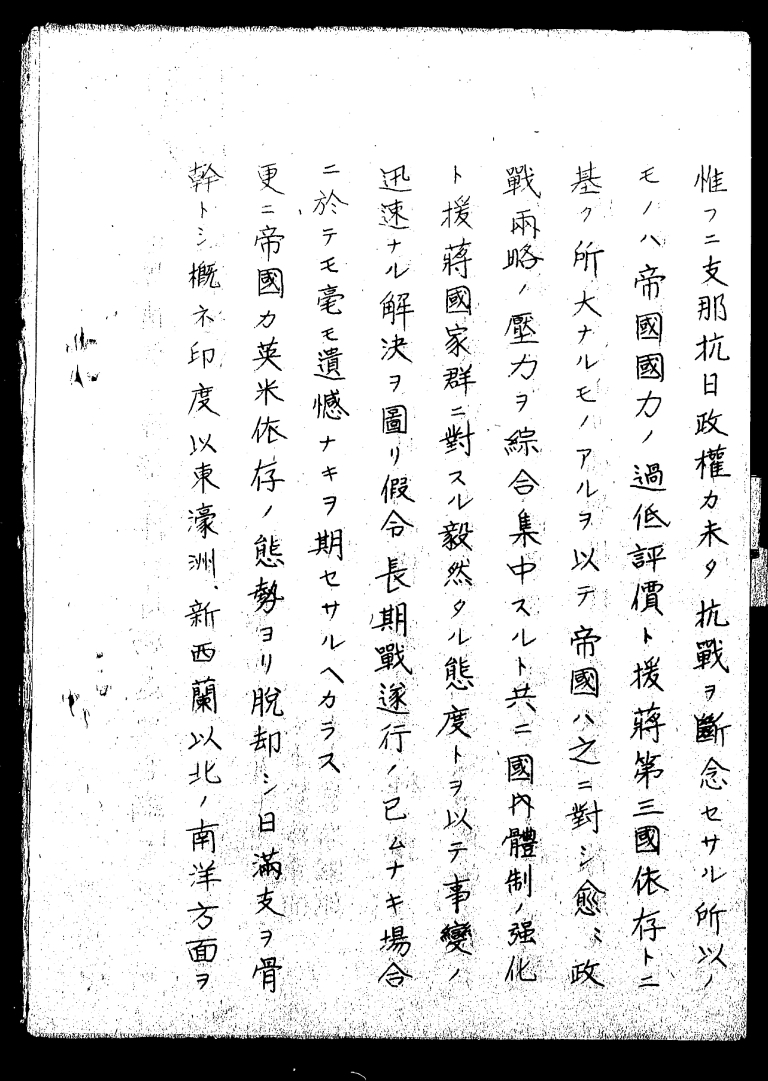 惟フニ支那抗日政權カ未タ抗戰ヲ斷念セサル所以ノ
モノハ帝國國力ノ過低評價ト援蔣第三國依存トニ
基ク所大ナルモノアルヲ以テ帝國ハ之ニ對シ愈〻政
戰兩略ノ壓力ヲ綜合集中スルト共ニ國內體制ノ强化
ト援蔣國家群ニ對スル毅然タル態度トヲ以テ事變ノ
迅速ナル解決ヲ圖リ假令長期戰遂行ノ已ムナキ場合
ニ於テモ毫モ遺憾ナキヲ期セサルヘカラス
更ニ帝國カ英米依存ノ態勢ヨリ脫却シ日滿支ヲ骨
幹トシ概ネ印度以東濠洲、新西蘭以北ノ南洋方面ヲ